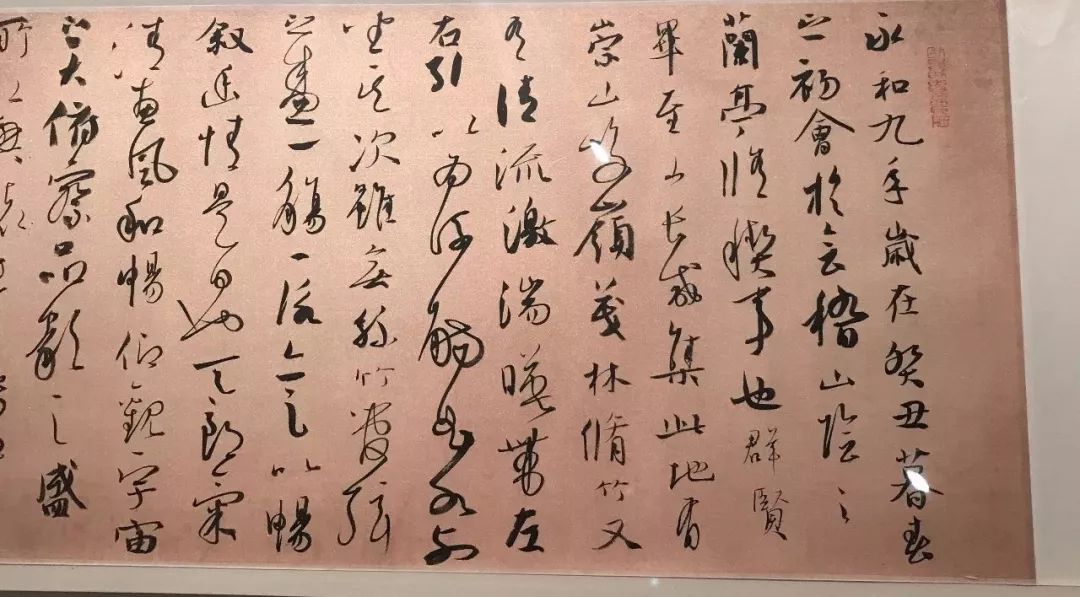 永和九年歲在癸丑暮春
之初會於会稽山陰之
蘭亭脩禊事也群賢
畢至少長咸集此地有
崇山峻嶺茂林脩竹又
有清流激湍暎帶左
右引以為流觴曲水列
坐其次雖無絲竹管弦
之盛一觴一詠亦足以暢
敘幽情是日也天朗氣
清惠風和暢仰觀宇宙
之大俯察品類之盛
所以